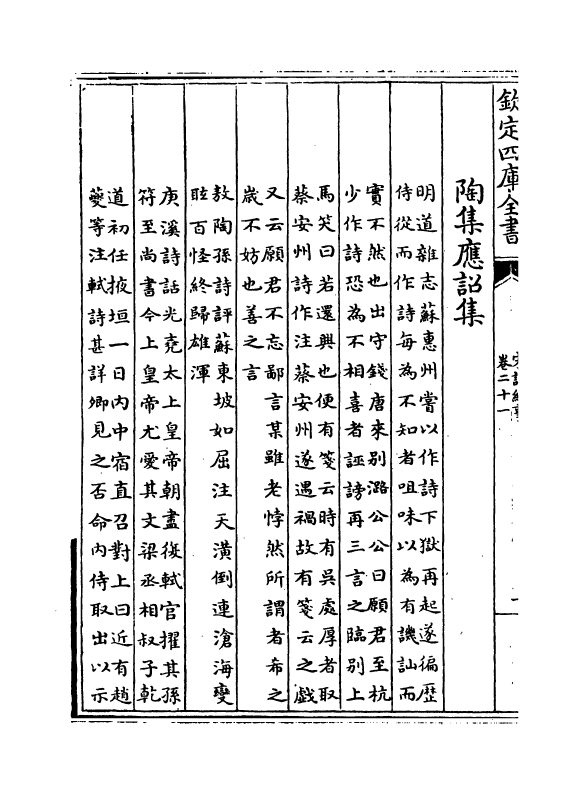 欽定四庫全書
卷二十一
陶集應詔集
明道雜志蘇惠州嘗以作詩下獄再起遂徧歷
侍從而作詩每為不知者咀味以為有譏訕而
實不然也出守錢唐來別潞公公曰願君至杭
少作詩恐為不相喜者誣謗再三言之臨別上
馬笑曰若還興也便有箋云時有吳處厚者取
蔡安州詩作注蔡安州遂遇禍故有箋云之戲
又云願君不忘鄙言某雖老悖然所謂者希之
歲不妨也善之言
敖陶孫詩評蘇東坡如屈注天潢倒連滄海變
眩百怪終歸雄渾
庚溪詩話光堯太上皇帝朝盡復軾官擢其孫
符至尚書今上皇帝尤愛其文梁丞相叔子乾
道初任掖垣一日内中宿直召對上曰近有趙
夔等注軾詩甚詳卿見之否命内侍取出以示